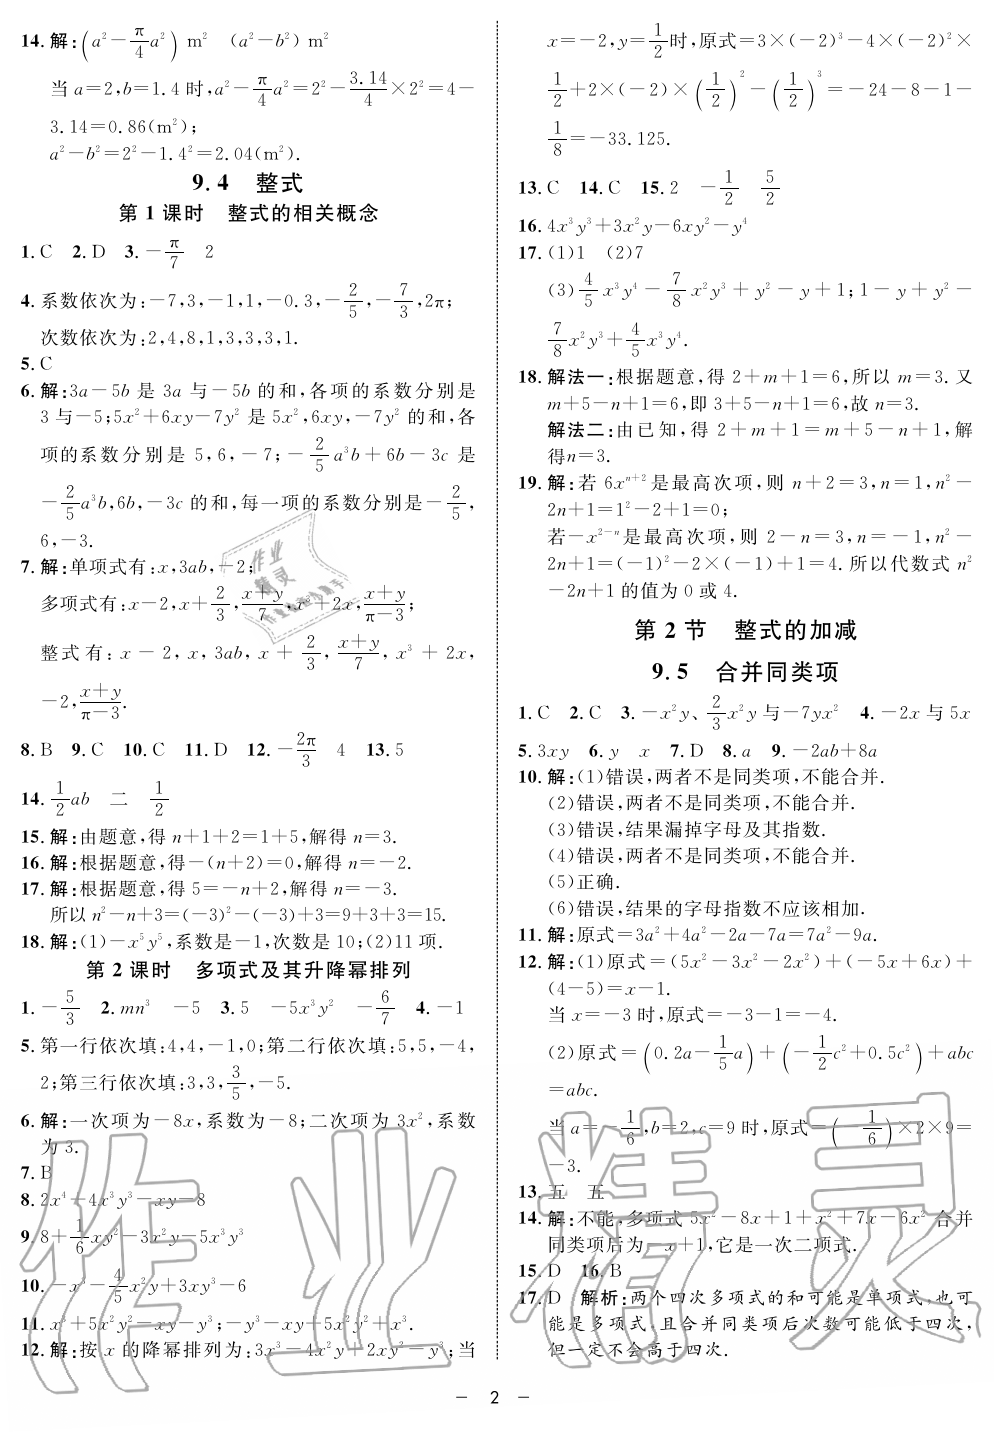 14.解:(a²-π/4 a²) m² (a²-b²) m²
当a=2,b=1.4时,a²-π/4 a²=2²-3.14/4×2²=4-
3.14=0.86(m²);
a²-b²=2²-1.4²=2.04(m²).
9.4 整式
第1课时 整式的相关概念
1.C 2.D 3.-π/7 2
4.系数依次为:-7,3,-1,1,-0.3,-2/5,-7/3,2π;
次数依次为:2,4,8,1,3,3,3,1.
5.C
6.解:3a-5b是3a与-5b的和,各项的系数分别是
3与-5;5x²+6xy-7y²是5x²,6xy,-7y²的和,各
项的系数分别是5,6,-7;-2/5 a³b+6b-3c是
-2/5 a³b,6b,-3c的和,每一项的系数分别是-2/5,
6,-3.
7.解:单项式有:x,3ab,-2;
多项式有:x-2,x+2/3,(x+y)/7,x³+2x,(x+y)/(π-3);
整式有:x-2,x,3ab,x+2/3,(x+y)/7,x³+2x,
-2,(x+y)/(π-3).
8.B 9.C 10.C 11.D 12.-2π/3 4 13.5
14.1/2 ab 二 1/2
15.解:由题意,得n+1+2=1+5,解得n=3.
16.解:根据题意,得-(n+2)=0,解得n=-2.
17.解:根据题意,得5=-n+2,解得n=-3.
所以n²-n+3=(-3)²-(-3)+3=9+3+3=15.
18.解:(1)-x⁵y⁵,系数是-1,次数是10;(2)11项.
第2课时 多项式及其升降幂排列
1.-5/3 2.mn³ -5 3.5 -5x³y² -6/7 4.-1
5.第一行依次填:4,4,-1,0;第二行依次填:5,5,-4,
2;第三行依次填:3,3,3/5,-5.
6.解:一次项为-8x,系数为-8;二次项为3x²,系数
为3.
7.B
8.2x⁴+4x³y³-xy-8
9.8+1/6 xy²-3x²y-5x³y³
10.-x³-4/5 x²y+3xy³-6
11.x³+5x²y²-xy-y³;-y³-xy+5x²y²+x³.
12.解:按x的降幂排列为:3x³-4x²y+2xy²-y³;当
x=-2,y=1/2时,原式=3×(-2)³-4×(-2)²×
1/2+2×(-2)×(1/2)²-(1/2)³=-24-8-1-
1/8=-33.125.
13.C 14.C 15.2 -1/2 5/2
16.4x³y³+3x²y-6xy²-y⁴
17.(1)1 (2)7
(3)4/5 x³y⁴-7/8 x²y³+y²-y+1;1-y+y²-
7/8 x²y³+4/5 x³y⁴.
18.解法一:根据题意,得2+m+1=6,所以m=3.又
m+5-n+1=6,即3+5-n+1=6,故n=3.
解法二:由已知,得2+m+1=m+5-n+1,解
得n=3.
19.解:若6xⁿ⁺²是最高次项,则n+2=3,n=1,n²-
2n+1=1²-2+1=0;
若-x²⁻ⁿ是最高次项,则2-n=3,n=-1,n²-
2n+1=(-1)²-2×(-1)+1=4.所以代数式n²
-2n+1的值为0或4.
第2节 整式的加减
9.5 合并同类项
1.C 2.C 3.-x²y、2/3 x²y与-7yx² 4.-2x与5x
5.3xy 6.y x 7.D 8.a 9.-2ab+8a
10.解:(1)错误,两者不是同类项,不能合并.
(2)错误,两者不是同类项,不能合并.
(3)错误,结果漏掉字母及其指数.
(4)错误,两者不是同类项,不能合并.
(5)正确.
(6)错误,结果的字母指数不应该相加.
11.解:原式=3a²+4a²-2a-7a=7a²-9a.
12.解:(1)原式=(5x²-3x²-2x²)+(-5x+6x)+
(4-5)=x-1.
当x=-3时,原式=-3-1=-4.
(2)原式=(0.2a-1/5 a)+(-1/2 c²+0.5c²)+abc
=abc.
当a=-1/6,b=2,c=9时,原式=(-1/6)×2×9=
-3.
13.五 五
14.解:不能,多项式5x²-8x+1+x²+7x-6x²合并
同类项后为-x+1,它是一次二项式.
15.D 16.B
17.D 解析:两个四次多项式的和可能是单项式,也可
能是多项式,且合并同类项后次数可能低于四次,
但一定不会高于四次.
- 2 -
作业精灵